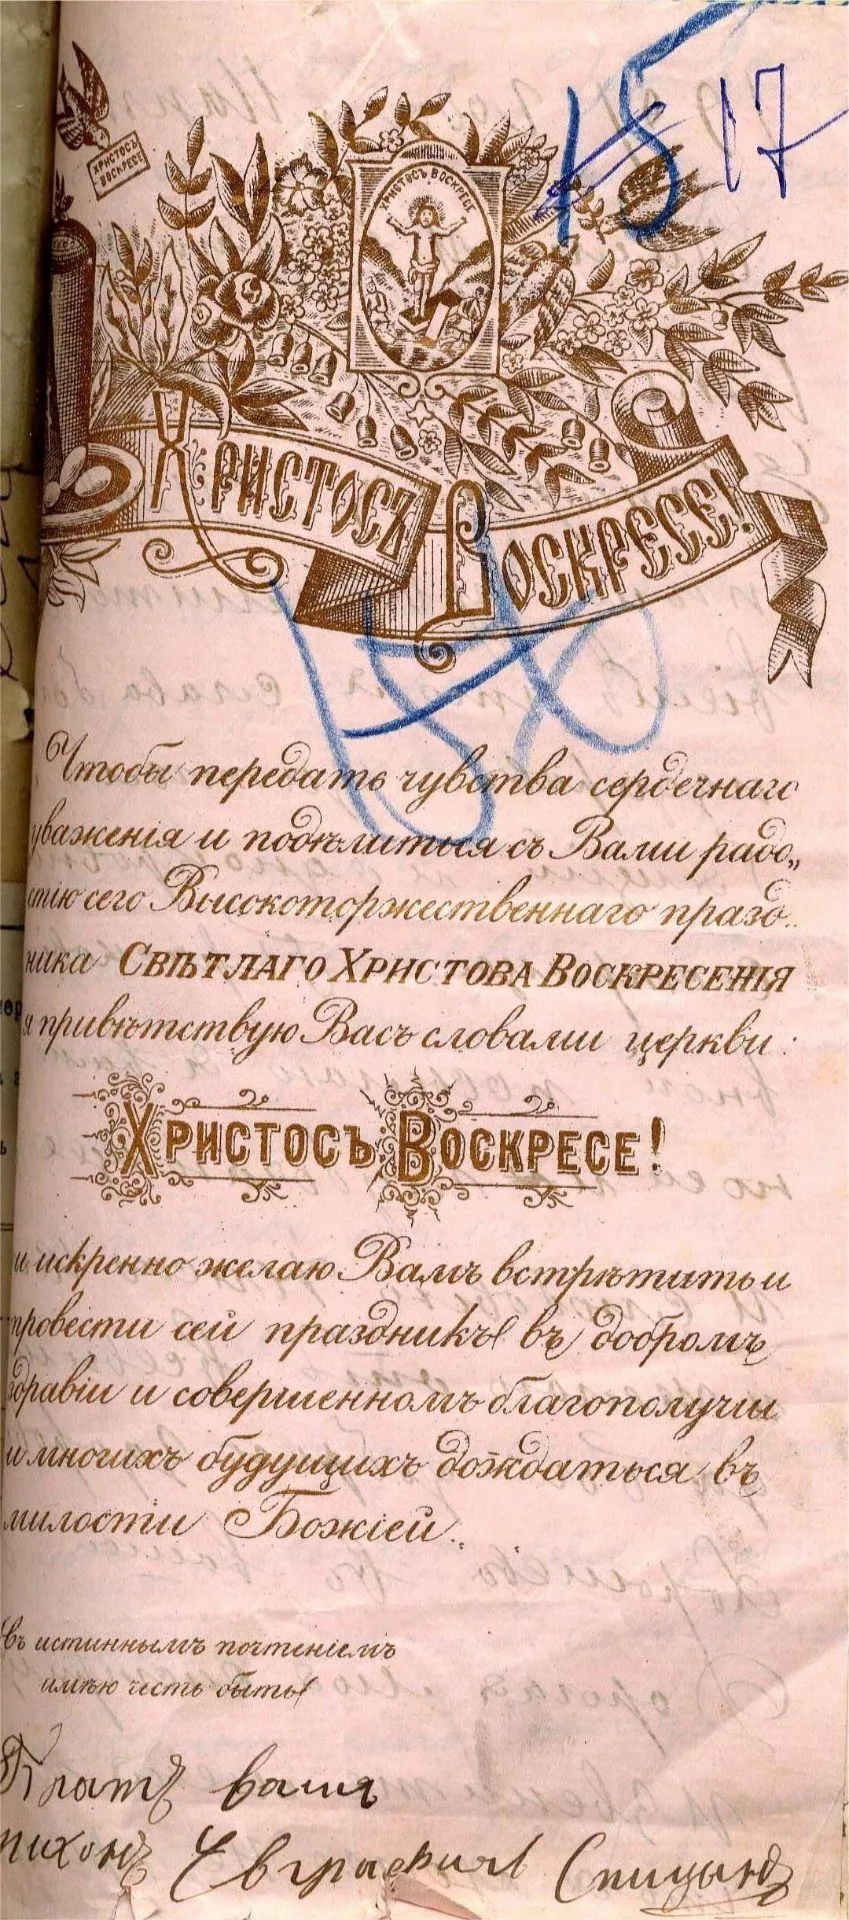 15 17
ХРИСТОСЪ
ВОСКРЕСЕ
ХРИСТОСЪ ВОСКРЕСЕ
ХРИСТОСЪ ВОСКРЕСЕ!
Чтобы передать чувства сердечнаго
уваженія и подѣлиться съ Вами радо„
стію сего Высокоторжественнаго празд..
ника СВѢТЛАГО ХРИСТОВА ВОСКРЕСЕНІЯ
я привѣтствую Васъ словами церкви:
ХРИСТОСЪ ВОСКРЕСЕ!
и искренно желаю Вамъ встрѣтить и
провести сей праздникъ въ добромъ
здравіи и совершенномъ благополучіи
и многихъ будущихъ дождаться въ
милости Божіей.
Съ истиннымъ почтеніемъ
имѣю честь быть
Братъ вашъ
тихонъ Евграфович Спицынъ